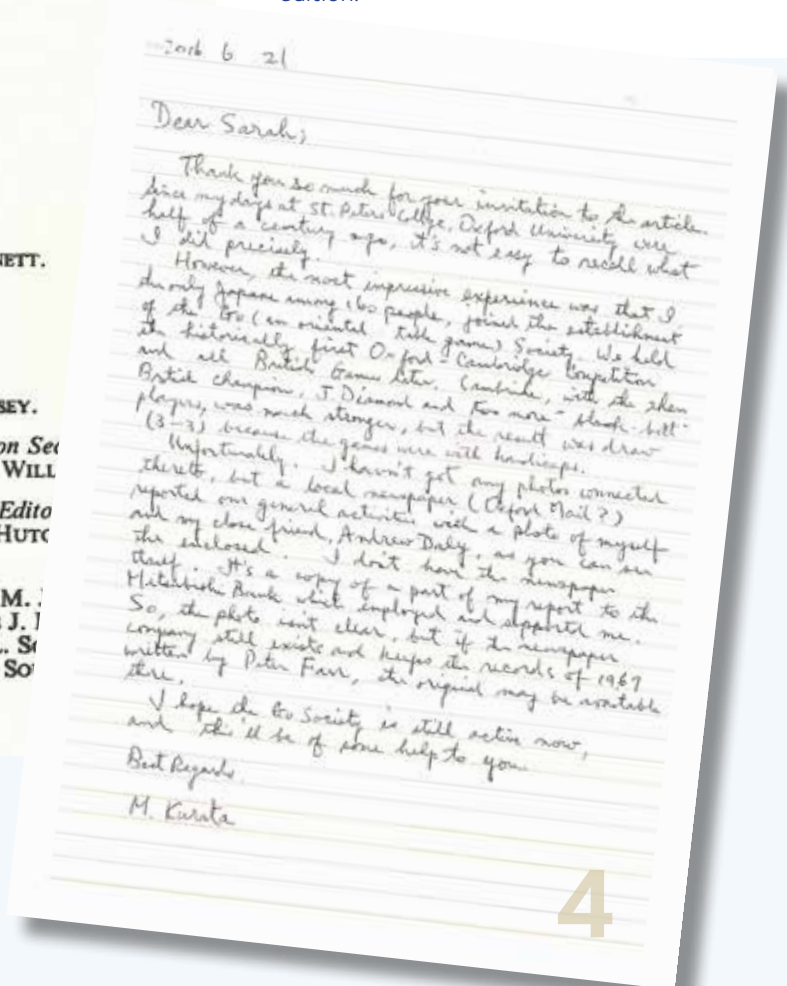 edition.
NETT.
SEY.
on Sec
WILL
Edito
HUTC
M.
J.
So
SOU
6 21
Dear Sarah,
Thank you so much for your invitation to the article.
Since my days at St. Peters College, Oxford University were
half of a century ago, it's not easy to recall what
I did precisely.
However, the most impressive experience was that I
the only Japanese among 160 people, joined the establishment
of the Go (an oriental table game) Society. We held
the historically first Oxford-Cambridge Competition
and all British Game later. with the then
British champion, J. Diamond and two more "black-belt"
players, was much stronger, but the result was draw
(3-3) because the games were with handicaps.
Unfortunately, I havn't got any photos connected
thereto, but a local newspaper (Oxford Mail?)
reported our general activities with a photo of myself
and my close friend, Andrew Daly, as you can see
the enclosed. I don't have the newspaper
itself. It's a copy of a part of my report to the
Mitsubishi Bank which employed and supported me.
So, the photo isn't clear, but if the newspaper
company still exists and keeps the records of 1967
written by Peter the original may be available
there.
I hope the Go Society is still active now,
and this'll be of some help to you.
Best Regards,
M. Kurata
4